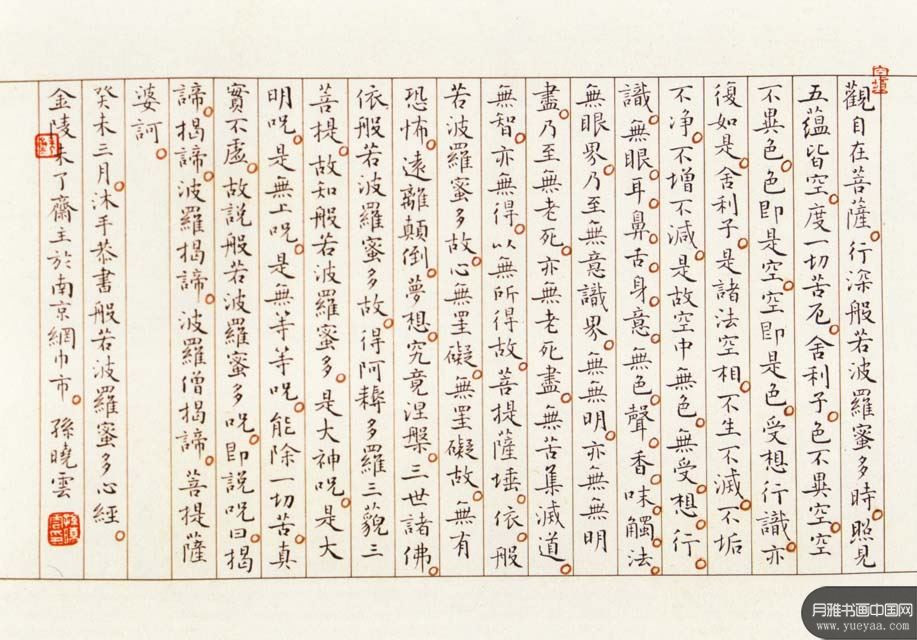 觀自在菩薩。行深般若波羅蜜多時。照見
五蘊皆空。度一切苦厄。舍利子。色不異空。空
不異色。色即是空。空即是色。受想行識。亦
復如是。舍利子。是諸法空相。不生不滅。不垢
不净。不增不減。是故空中無色。無受。想。行。
識。無眼。耳。鼻。舌。身。意。無色。聲。香。味。觸。法。
無眼界。乃至無意識界。無無明。亦無無明
盡。乃至無老死。亦無老死盡。無苦集滅道。
無智。亦無得。以無所得故。菩提薩埵。依般
若波羅蜜多故。心無罣礙。無罣礙故。無有
恐怖。遠離顛倒。夢想。究竟涅槃。三世諸佛。
依般若波羅蜜多故。得阿耨多羅三藐三
菩提。故知般若波羅蜜多。是大神呪。是大
明呪。是無上呪。是無等等呪。能除一切苦。真
實不虛。故説般若波羅蜜多呪。即説呪曰。揭
諦。揭諦。波羅揭諦。波羅僧揭諦。菩提薩
婆訶。
癸未三月。沐手恭書般若波羅蜜多心經。
金陵未了齋主於南京網巾市。孫曉雲
月雅书画中国网
www.yueyaa.com